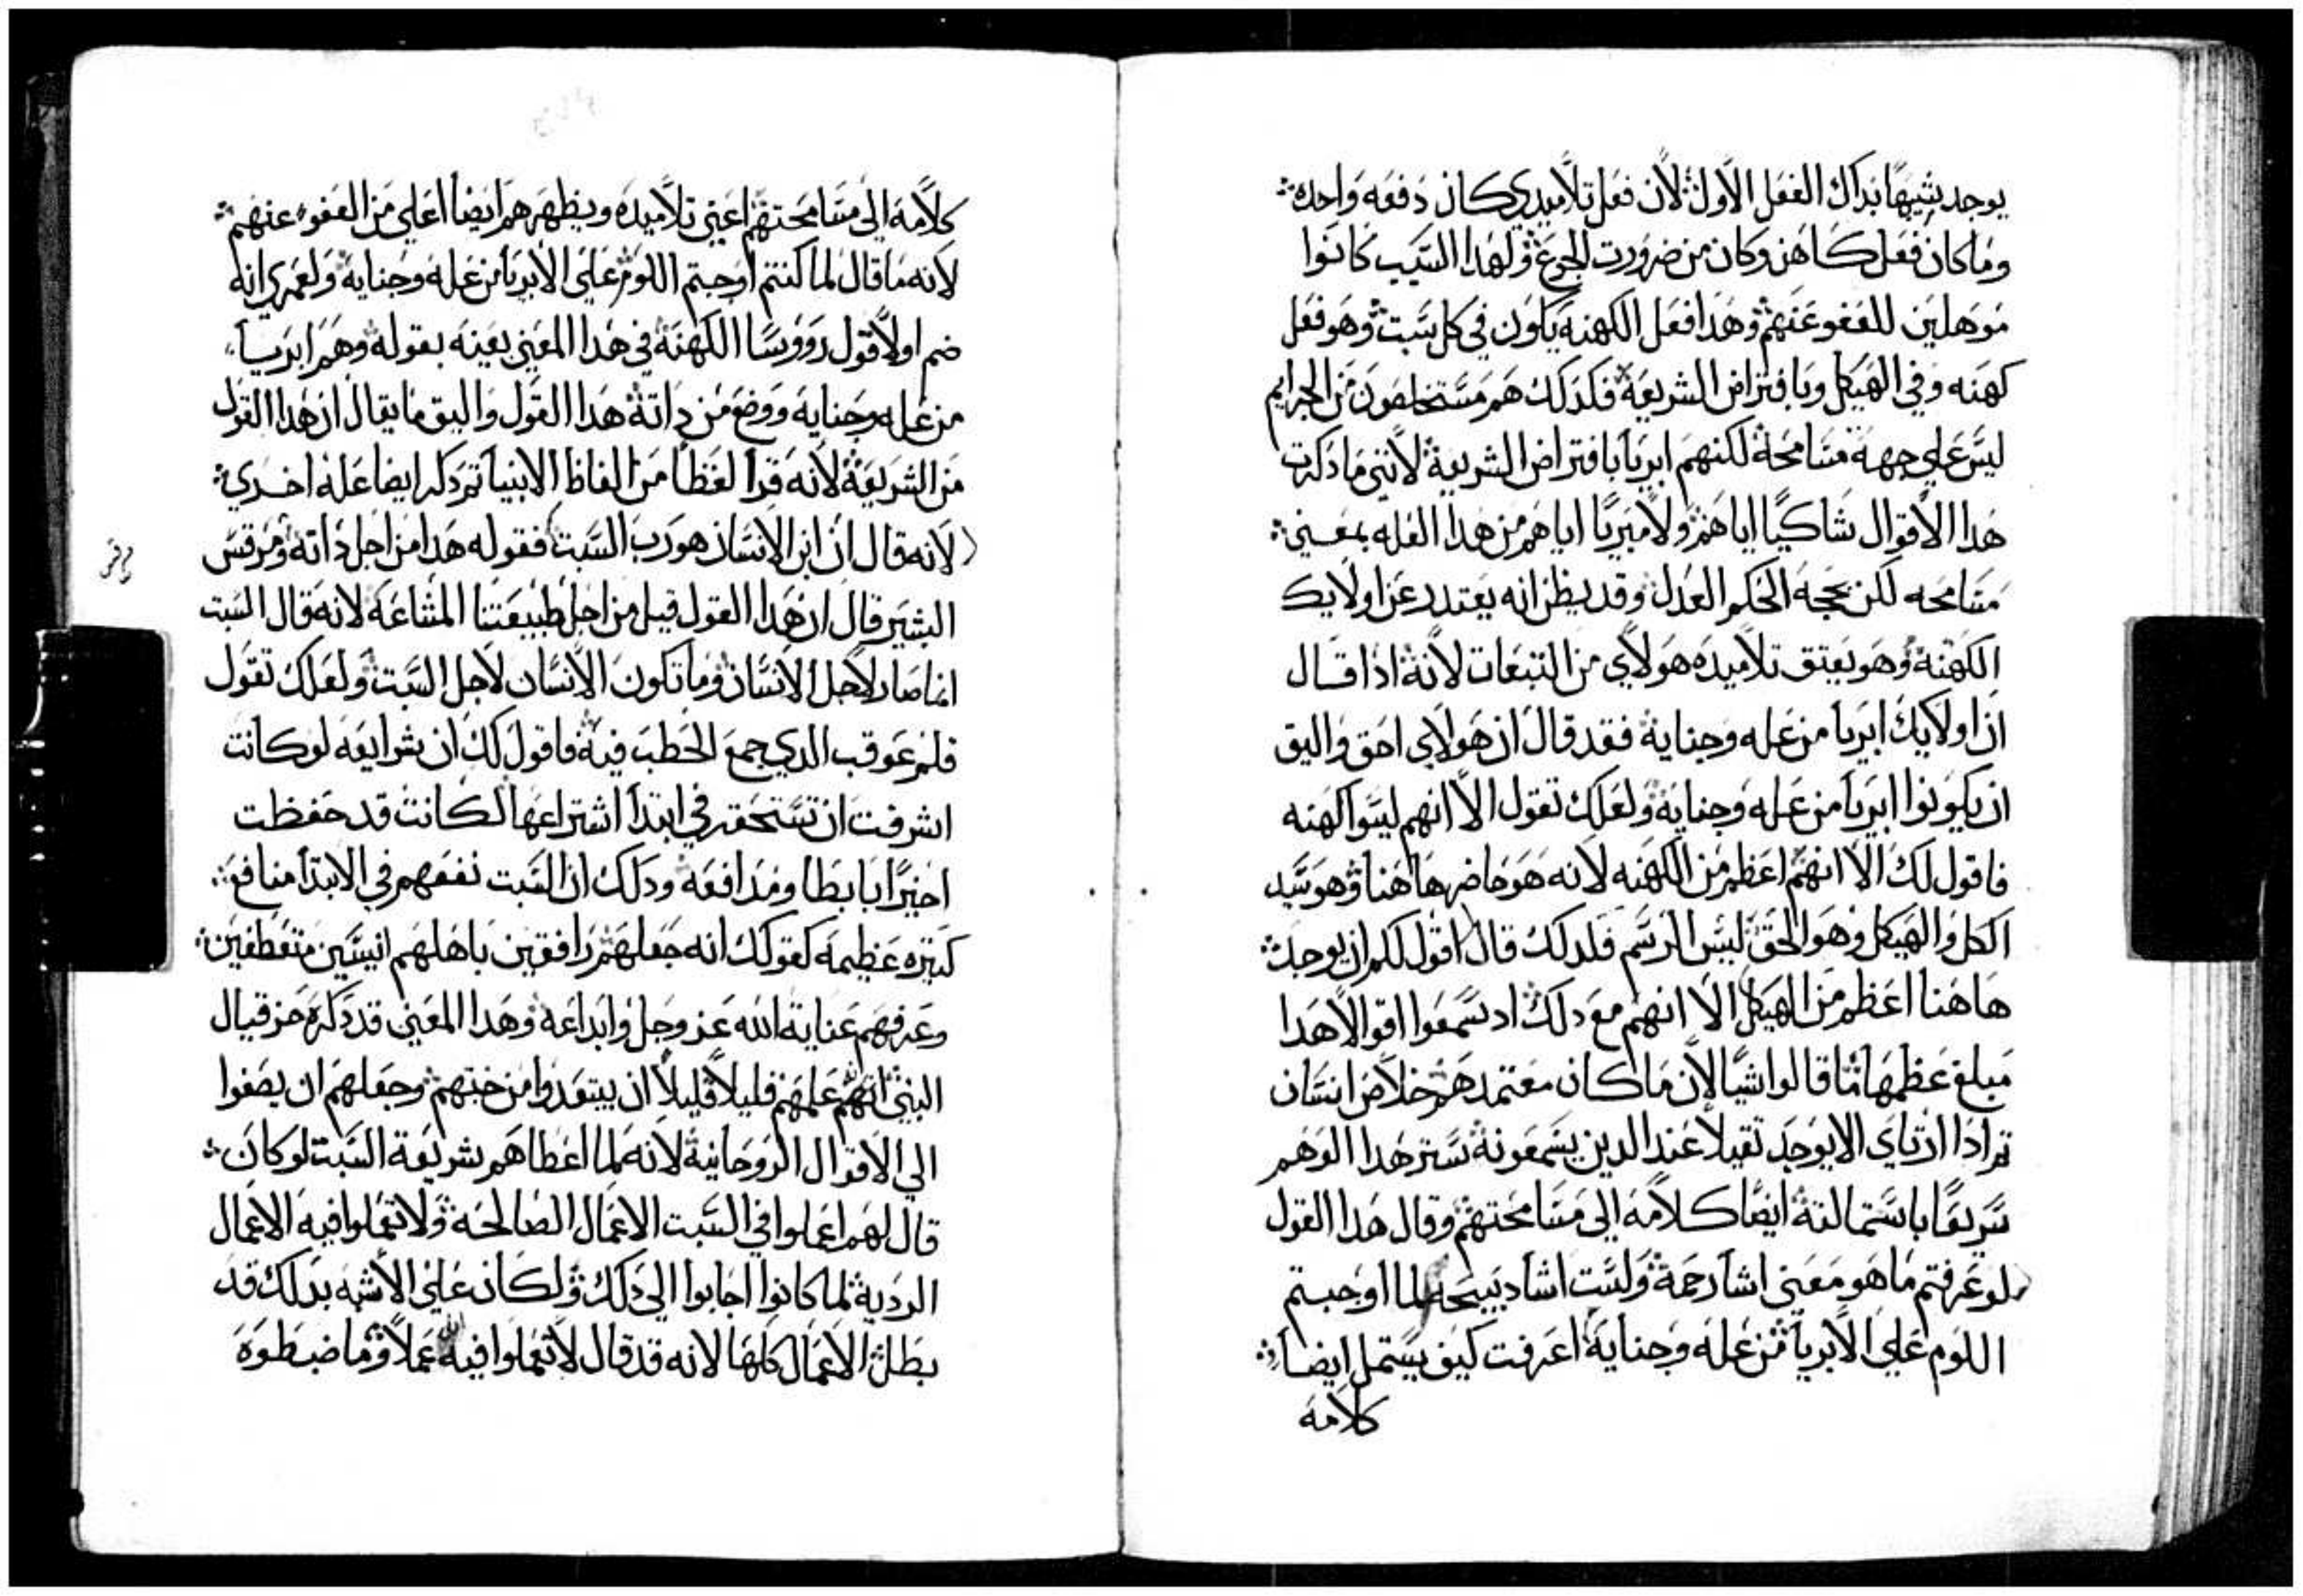 يوجد شبيهًا بداك الفعل الاول لان فعل تلاميدي كان دفعه واحده
وما كان فعل كاهن وكان من ضرورت الجوع ولهدا السبب كانوا
موهلين للعفو عنهم وهدا فعل الكهنه يكون في كل سبت وهو فعل
كهنه وفي الهيكل وبافتراض الشريعة فكدلك هم مستخلصون من الجرايم
ليس علي جهة مسامحة لكنهم ابريا بافتراض الشريعة لانني ما دكرت
هدا الاقوال شاكيًا اياهم ولا مبريًا اياهم من هدا العله بمعني
مسامحه لكن بحجة الحكم العدل وقد يظن انه يعتدر عن اولايك
الكهنة وهو يعتق تلاميده هولاي من التبعات لانه ادا قال
ان اولايك ابريا من عله وجناية فقد قال ان هولاي احق واليق
ان يكونوا ابريا من عله وجناية ولعلك تقول الا انهم ليسوا كهنه
فاقول لك الا انهم اعظم من الكهنه لانه هو حاضر هاهنا وهو سيد
الكل والهيكل وهو الحق ليس الرسم فلدلك قال اقول لكم ان يوجد
هاهنا اعظم من الهيكل الا انهم مع دلك اد سمعوا اقوالا هدا
مبلغ عظمها ما قالوا شيًا لان ما كان معتمدهم خلاص انسان
تم ادا ارتاي الا يوجد تقيلا عند الدين يسمعونه ستر هدا الوهم
سريعًا باستمالته ايضًا كلامه الي مسامحتهم وقال هدا القول
لو عرفتم ما هو معني اشا رحمة ولست اشا دبيحه لما اوجبتم
اللوم علي الابريا من عله وجناية اعرفت كيف يستمل ايضا
كلامه
كلامه الي مسامحتهم اعني تلاميده ويظهرهم ايضا اعلي من العفو عنهم
لانه ما قال لما كنتم اوجبتم اللوم علي الابريا من عله وجناية ولعمري انه
ضم اولا قول رووسا الكهنة في هدا المعني بعينه بقوله وهم ابريا
من عله وجنايه ووضع من داته هدا القول واليق ما يقال ان هدا القول
من الشريعة لانه قرا لفظا من الفاظ الانبيا تم دكر ايضا عله اخري
لانه قال ان ابن الانسان هو رب السبت فقوله هدا من اجل داته ومرقس
البشير قال ان هدا القول قيل من اجل طبيعتنا المشاعة لانه قال السبت
انما صار لاجل الانسان وما تكون الانسان لاجل السبت ولعلك تقول
فلم عوقب الدي جمع الحطب فيه فاقول لك ان شرايعه لو كانت
اشرفت ان تستحقر في ابتدا اشتراعها لكانت قد حفظت
اخيرًا بابطا ومدافعه ودلك ان السبت نفعهم في الابتدا منافع
كتيره عظيمه كقولك انه جعلهم رافقين باهلهم انيسين متعطفين
وعرفهم عناية الله عز وجل وابداعه وهدا المعني قد دكره حزقيال
النبي انهم علمهم قليلًا قليلًا ان يبتعدوا من خبتهم وجعلهم ان يصغوا
الي الاقوال الروحانية لانه لما اعطاهم شريعة السبت لو كان
قال لهم اعملوا في السبت الاعمال الصالحة ولا تعملوا فيه الاعمال
الردية لما كانوا اجابوا الي دلك ولكان علي الاشبه بدلك قد
بطل الاعمال كلها لانه قد قال لا تعملوا فيه عملًا وما ضبطوه